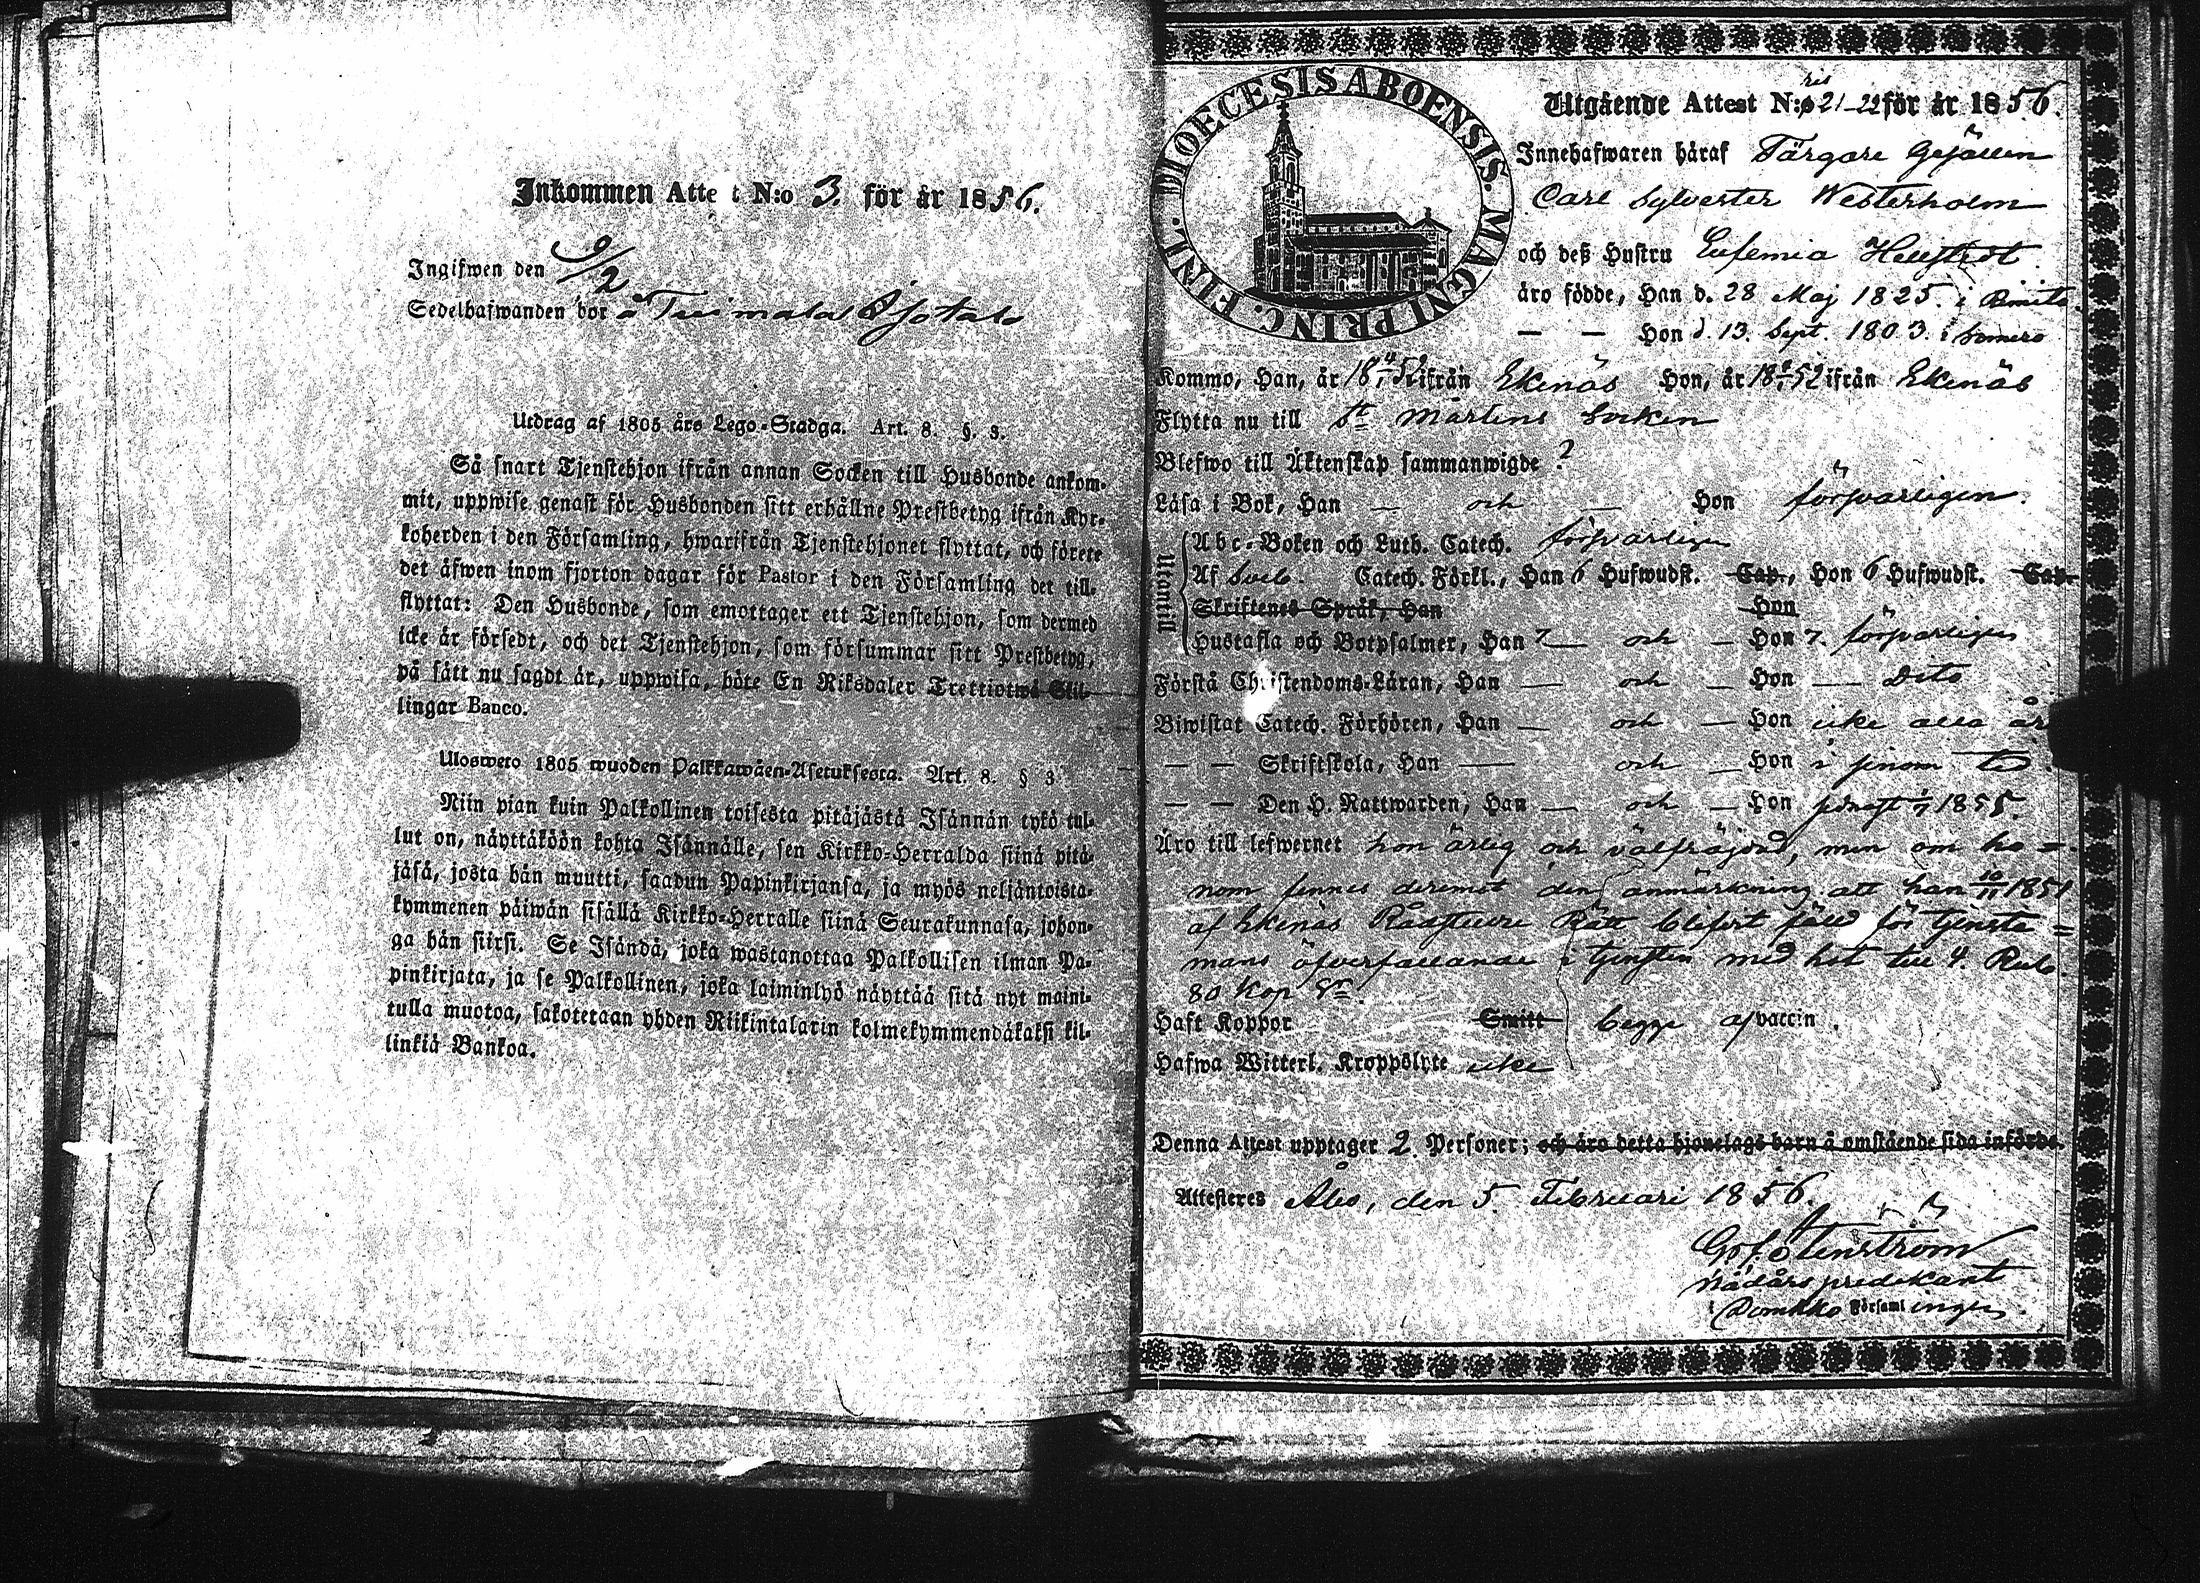 Inkommen Atte t N:o 3. för år 1856.
Ingifwen den 9/2
Sedelhafwanden bor å
Utdrag af 1805 års Lego-Stadga. Art. 8. §. 3.
Så snart Tjenstehjon ifrån annan Socken till Husbonde ankom-
mit, uppwise genast för Husbonden sitt erhållne Prestbetyg ifrån Kyr-
koherden i den Församling, hwarifrån Tjenstehjonet flyttat, och förete
det äfwen inom fjorton dagar för Pastor i den Församling det till-
flyttat: Den Husbonde, som emottager ett Tjenstehjon, som dermed
icke är försedt, och det Tjenstehjon, som försummar sitt Prestbetyg,
på sätt nu sagdt är, uppwisa, böte En Riksdaler Trettiotwå Skil-
lingar Banco.
Ulosweto 1805 wuoden Palkkawäen-Asetuksesta. Art. 8. § 3.
Niin pian kuin Palkollinen toisesta pitäjästä Isännän tykö tul-
lut on, näyttäköön kohta Isännälle, sen Kirkko-Herralda siinä pitä-
jäsä, josta hän muutti, saadun Papinkirjansa, ja myös neljäntoista-
kymmenen päiwän sisällä Kirkko-Herralle siinä Seurakunnasa, johon-
ga hän siirsi. Se Isändä, joka wastanottaa Palkollisen ilman Pa-
pinkirjata, ja se Palkollinen, joka laiminlyö näyttää sitä nyt maini-
tulla muotoa, sakotetaan yhden Riikintalarin kolmekymmendäkaksi kil-
linkiä Bankoa.
FINL. DIOECESIS ABOENSIS. MAGNI PRINC.
Utgående Attest N:ris 21-22 för år 1856.
Innehafwaren häraf Färgare Gesällen
Carl Sylvester Westerholm
och deß Hustru Eufemia
äro födde, Han d. 28 Maj 1825 i Bimito
— — Hon d. 13. Sept. 1803. i Somero
Kommo, Han, år 18 52 ifrån Ekenäs Hon, år 18 52 ifrån Ekenäs
Flytta nu till St Mårtens Socken
Blefwo till Äktenskap sammanwigde ?
Läsa i Bok, Han — och — Hon försvarligen.
Utantill
Abc-Boken och Luth. Catech. försvarligen
Af Sveb. Catech. Förkl., Han 6 Hufwudst. Cap., Hon 6 Hufwudst. Cap.
Skriftenes Språk, Han Hon
Hustafla och Botpsalmer, Han 7 — och — Hon 7. försvarligen
Förstå Christendoms-Läran, Han — och — Hon — Dito
Biwistat Catech. Förhören, Han — och — Hon icke alla år
— — Skriftskola, Han — och — Hon
— — Den H. Nattwarden, Han — och — Hon 1855.
Äro till lefwernet hon ärlig och välfräjdad, men om ho-
nom finnes deremot den anmärkning att han 10/11 1851
af Ekenäs Rådstufvu Rätt blifvit fälld för tjenste-
mans öfverfallande i tjensten med hot till 4. Rub.
80 Kop Sr.
Haft Koppor Smitt begge af vaccin.
Hafwa Witterl. Kroppslyte icke
Denna Attest upptager 2. Personer; och äro detta hjonelags barn å omstående sida införde.
Attesteres Åbo, den 5. Februari 1856.
Stenström
Nådårs predikant
i Domkko Församlingen.